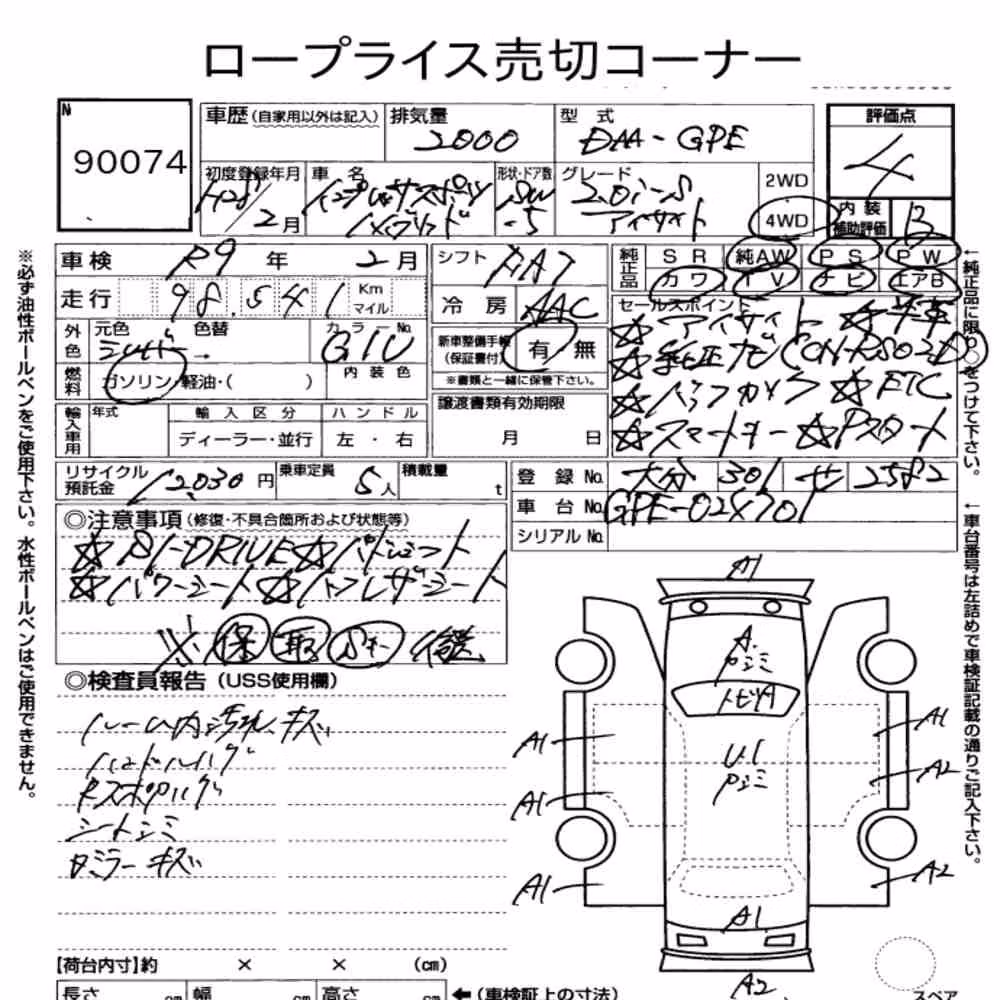 ロープライス売切コーナー
N
90074
車歴(自家用以外は記入)
排気量
2000
型 式
DAA-GPE
評価点
4
初度登録年月
H28/2月
車 名
インプレッサスポーツ
ハイブリッド
形状・ドア数
SW
-5
グレード
2.0i-S
アイサイト
2WD
4WD
内 装
補助評価
B
車検 R9 年 2月
シフト
冷 房 AAC
純正品 SR 純AW PS PW
カワ TV ナビ エアB
走行 98,541 Km マイル
外色 元色 色替
シルバー →
カラーNo.
G1U
燃料 ガソリン・軽油・( )
内装色
新車整備手帳
(保証書付)
有・無
※書類と一緒に保管下さい。
セールスポイント
☆アイサイト
☆純正ナビ(CN-RS02D)
☆バックカメラ ☆ETC
☆スマートキー ☆Pスタート
輸入車用 年式 輸入区分 ハンドル
ディーラー・並行 左・右
譲渡書類有効期限
月 日
リサイクル
預託金
12,030 円
乗車定員
5人
積載量
t
登録No. 大分 301 せ 2582
車台No. GPE-024701
シリアルNo.
◎注意事項(修復・不具合箇所および状態等)
☆SI-DRIVE ☆パドルシフト
☆パワーシート ☆ハーフレザーシート
※ 保 取 Sキー 後送
◎検査員報告(USS使用欄)
ルーム内汚れ、キズ
ハンドルハゲ
シートシミ
ミラーキズ
A1
A.
トビリA
U.1
A1
A1
A1
A1
A2
A2
A1
A2
【荷台内寸】約 × × (cm)
長さ cm 幅 cm 高さ cm
←(車検証上の寸法)
スペア
※必ず油性ボールペンをご使用下さい。水性ボールペンはご使用できません。
←純正品に限り○をつけて下さい。
←車台番号は左詰めで車検証記載の通りご記入下さい。